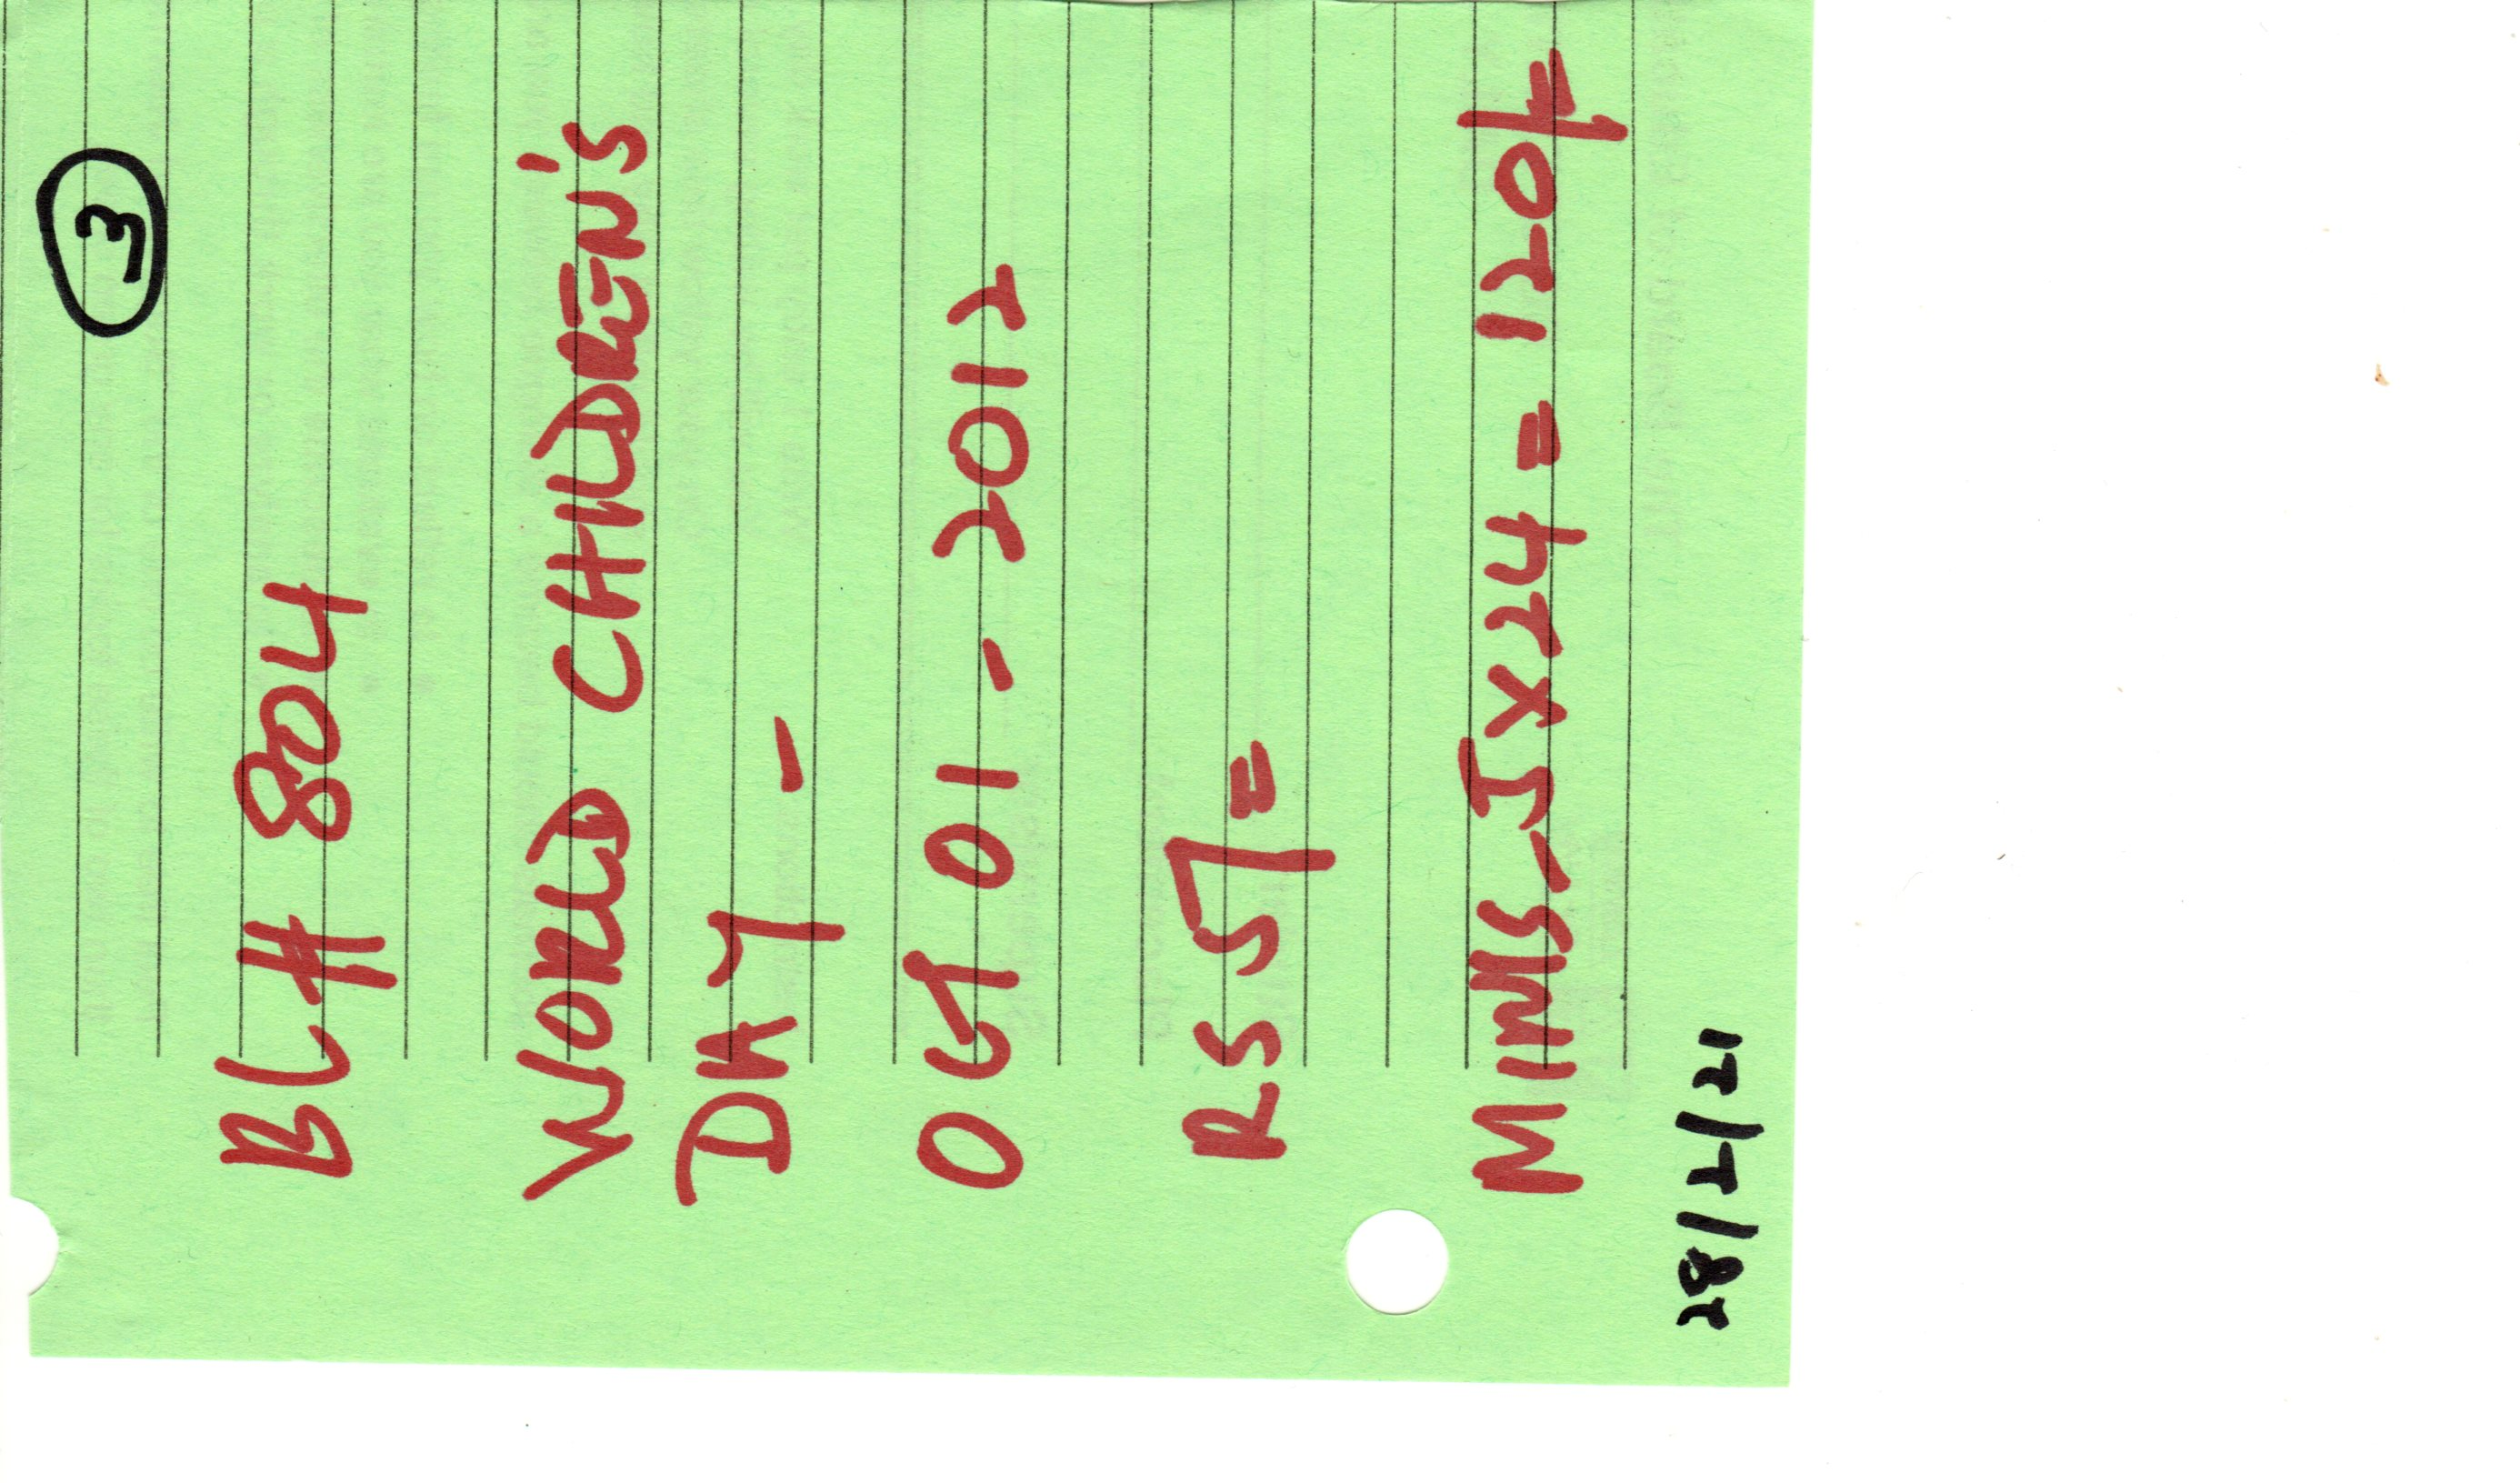 3
BL# 804
WORLD CHILDREN'S
DAY -
05 01 - 2012
RS 5/=
MINS-5X24=120/=
28/2/21